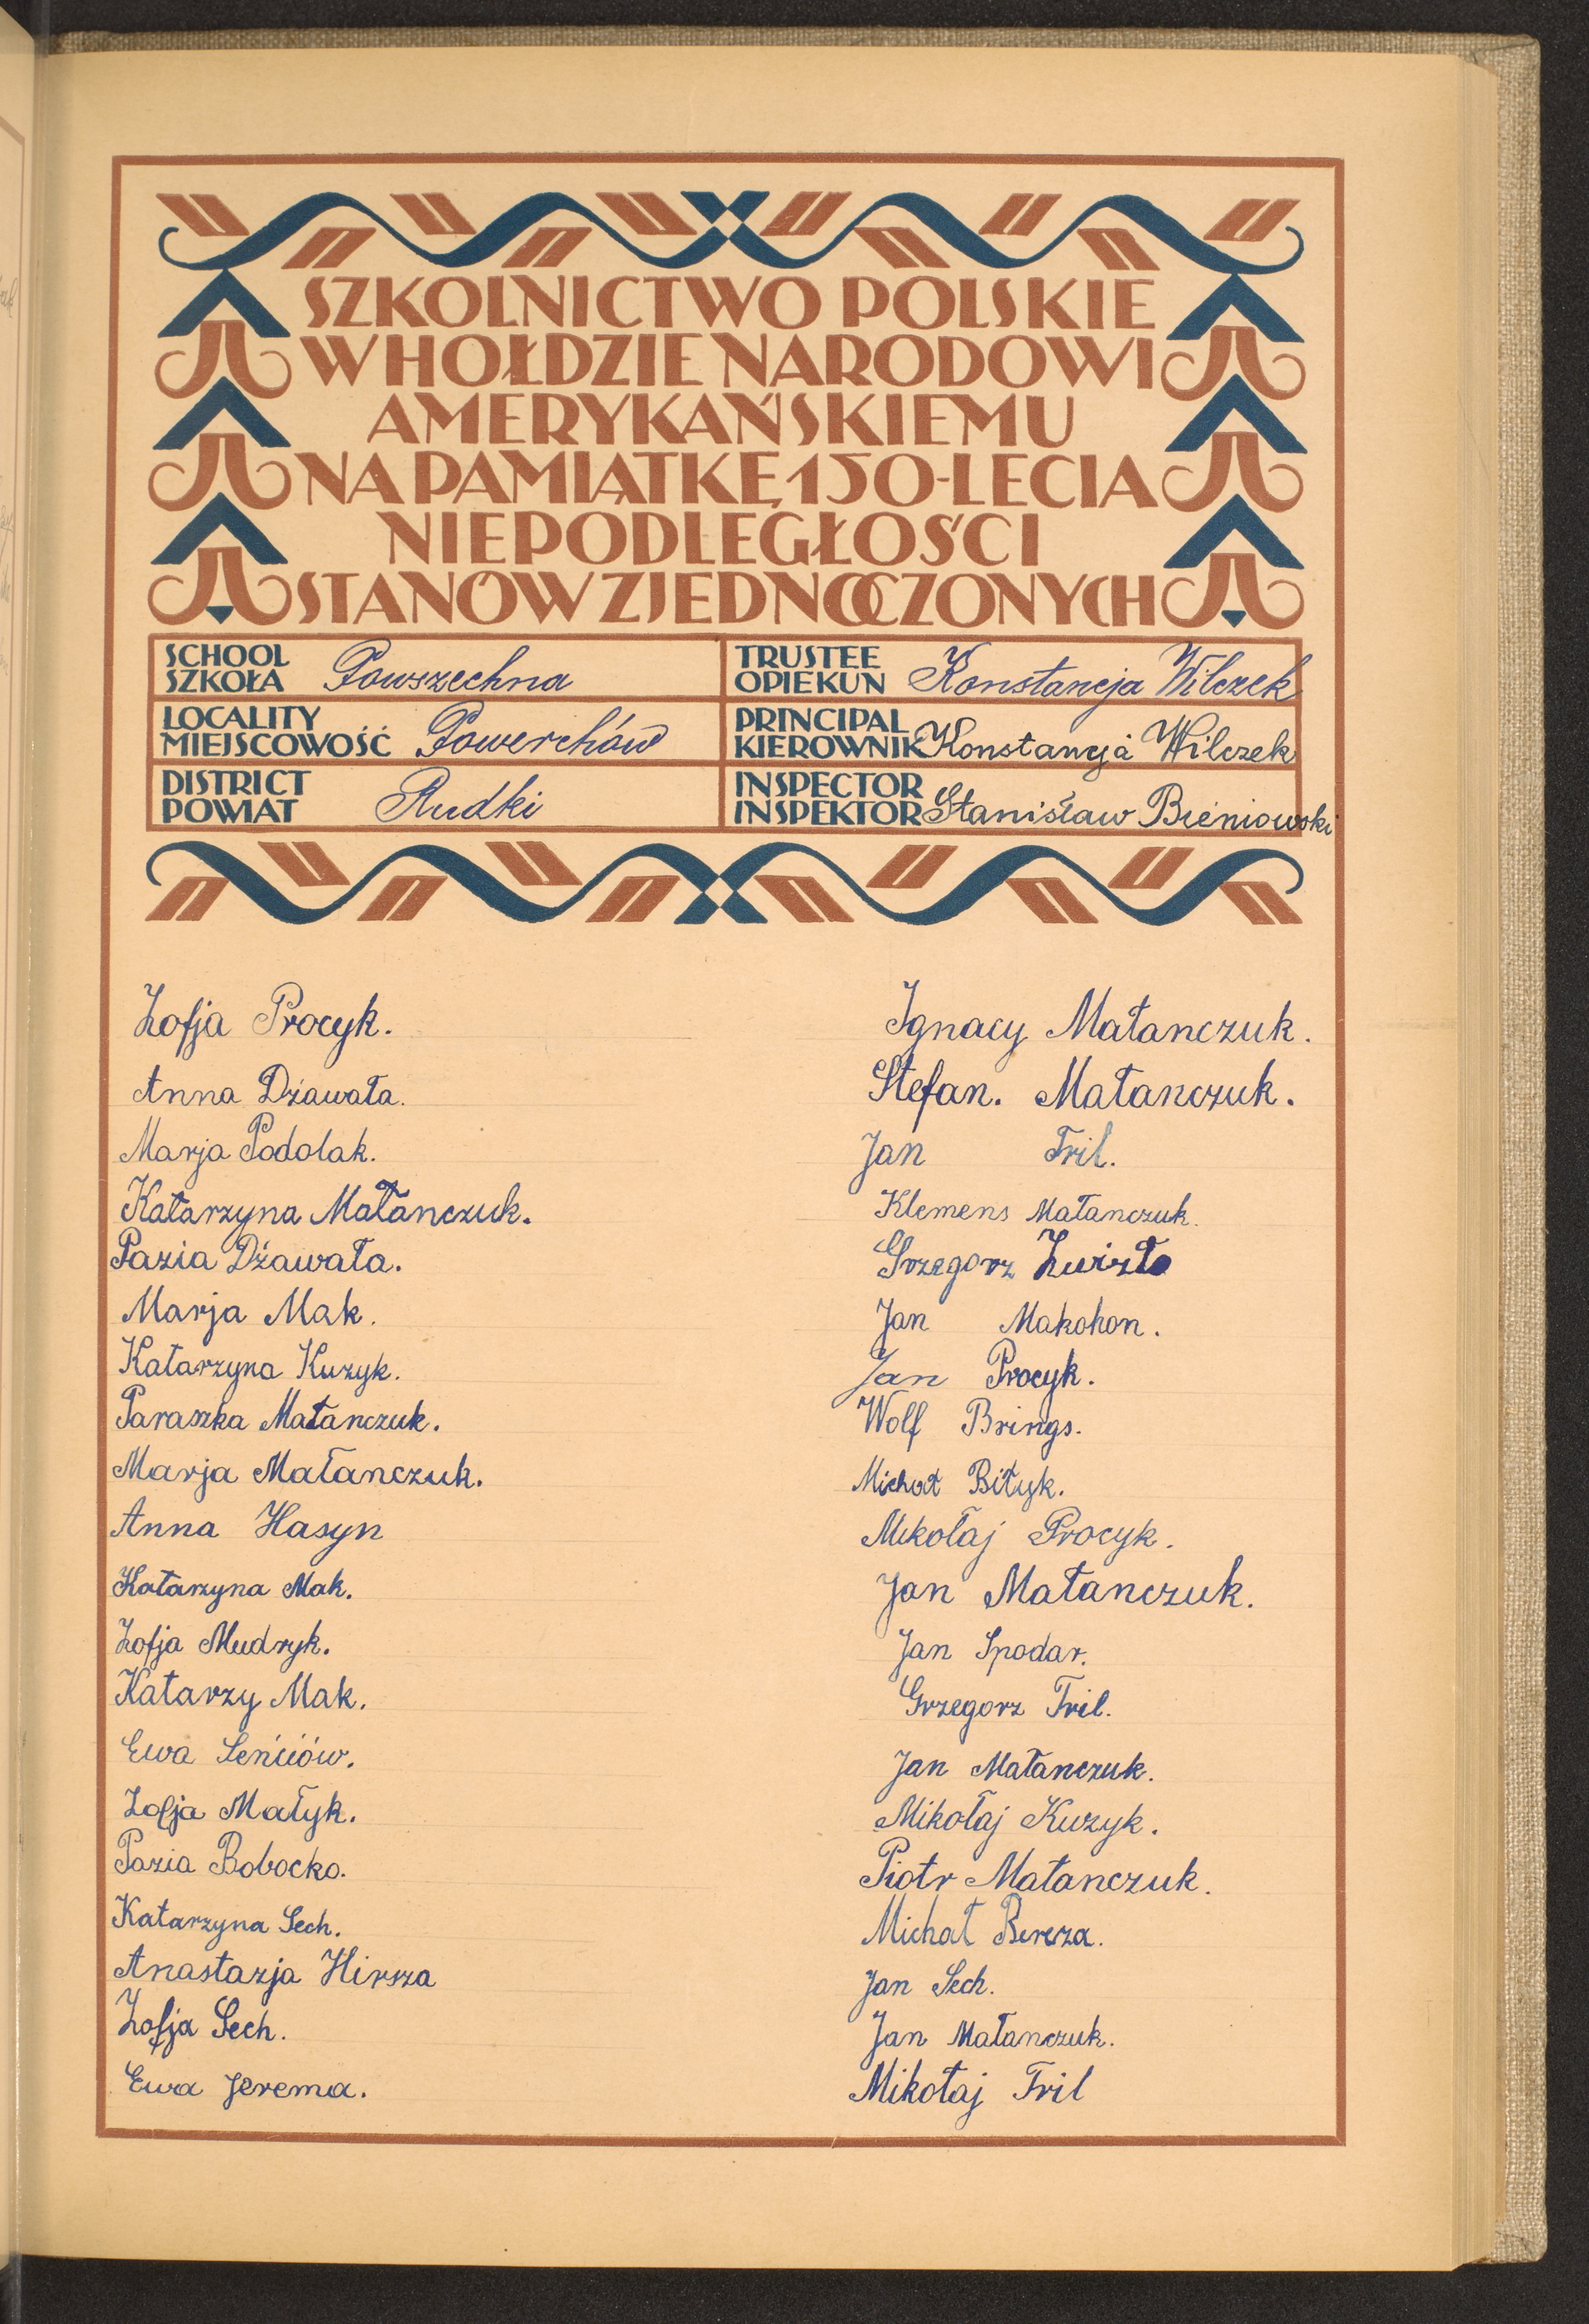 SZKOLNICTWO POLSKIE
W HOŁDZIE NARODOWI
AMERYKAŃSKIEMU
NA PAMIĄTKĘ 150-LECIA
NIEPODLEGŁOŚCI
STANÓW ZJEDNOCZONYCH
SCHOOL
SZKOŁA Powszechna
TRUSTEE
OPIEKUN Konstancja Wilczek
LOCALITY
MIEJSCOWOŚĆ Powerchów
PRINCIPAL
KIEROWNIK Konstancja Wilczek
DISTRICT
POWIAT Rudki
INSPECTOR
INSPEKTOR Stanisław Bieniowski
Zofja Procyk.
Anna Dżawała.
Marja Podolak.
Katarzyna Małanczuk.
Pazia Dżawała.
Marja Mak.
Katarzyna Kuzyk.
Paraszka Małanczuk.
Marja Małanczuk.
Anna Hasyn
Katarzyna Mak.
Zofja Mudryk.
Katarzy Mak.
Ewa Seńciów.
Zofja Małyk.
Pazia Bobocko.
Katarzyna Sech.
Anastazja Hirsza
Zofja Sech.
Ewa Jerema.
Ignacy Małanczuk.
Stefan. Małanczuk.
Jan Tril.
Klemens Małanczuk.
Grzegorz
Jan Makohon.
Jan Procyk.
Wolf Brings.
Michał Bityk.
Mikołaj Procyk.
Jan Małanczuk.
Jan Spodar.
Grzegorz Tril.
Jan Małanczuk.
Mikołaj Kuzyk.
Piotr Małanczuk.
Michał Bereza.
Jan Sech.
Jan Małanczuk.
Mikołaj Tril